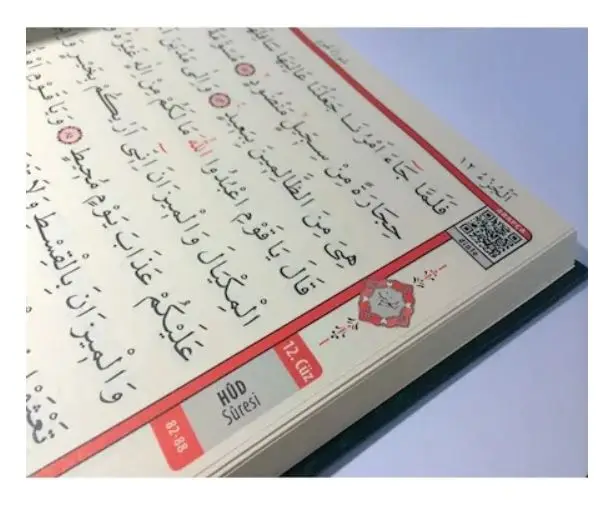 اَلْجُزْءُ ١٢
فَلَمَّا جَٓاءَ اَمْرُنَا جَعَلْنَا عَالِيَهَا سَافِلَهَا
حِجَارَةً مِنْ سِجّ۪يلٍ مَنْضُودٍ مُسَوَّمَةً
هِيَ مِنَ الظَّالِم۪ينَ بِبَع۪يدٍ وَاِلٰى مَدْيَنَ
قَالَ يَا قَوْمِ اعْبُدُوا اللّٰهَ مَا لَكُمْ مِنْ اِلٰهٍ غَيْرُهُ
الْمِكْيَالَ وَالْم۪يزَانَ اِنّ۪ٓي اَرٰيكُمْ بِخَيْرٍ
عَلَيْكُمْ عَذَابَ يَوْمٍ مُح۪يطٍ وَيَا قَوْمِ
وَالْم۪يزَانَ بِالْقِسْطِ وَلَا
12. Cüz
HÛD
Sûresi
82-88